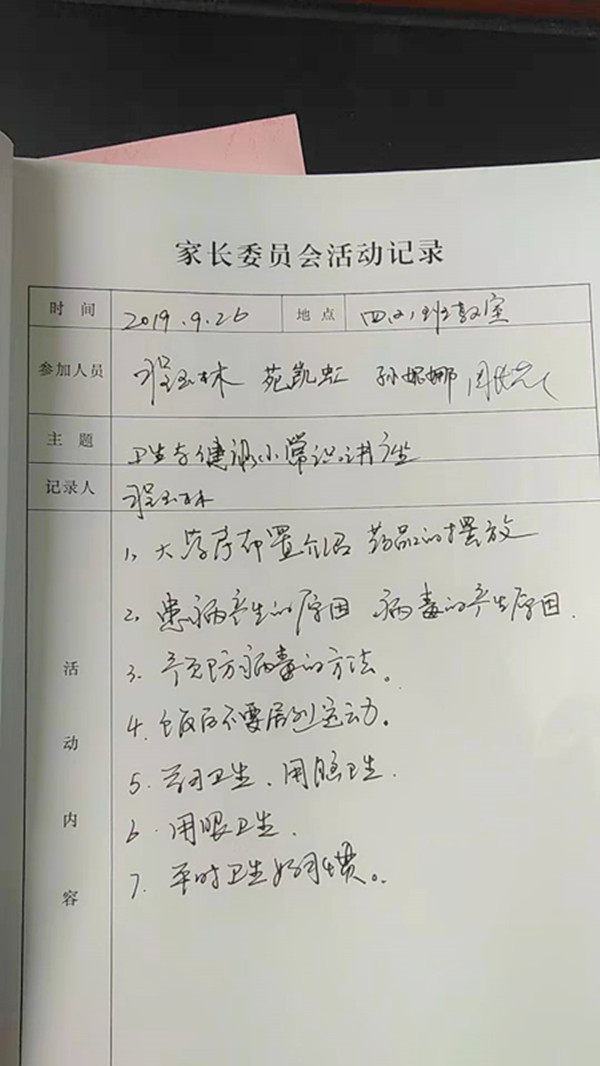 家长委员会活动记录
时间 2019.9.26 地点 四(2)班教室
参加人员 程玉林 苑凯虹 孙娜娜
主题 卫生与健康小常识讲座
记录人 程玉林
活动内容
1、大药房布置介绍 药品的摆放
2、患病产生的原因 病毒的产生原因.
3、预防病毒的方法。
4、饭后不要剧烈运动。
5、学习卫生、用脑卫生.
6、用眼卫生.
7、平时卫生好习惯。